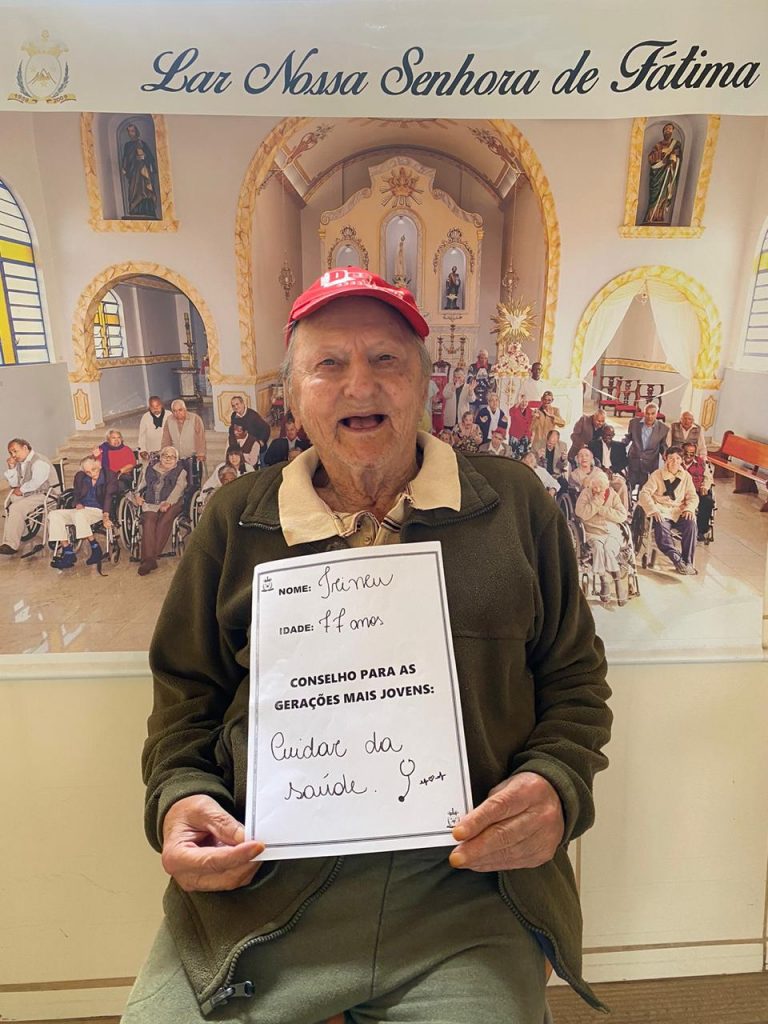 Lar Nossa Senhora de Fátima
NOME: Irineu
IDADE: 77 anos
CONSELHO PARA AS
GERAÇÕES MAIS JOVENS:
Cuidar da
saúde.